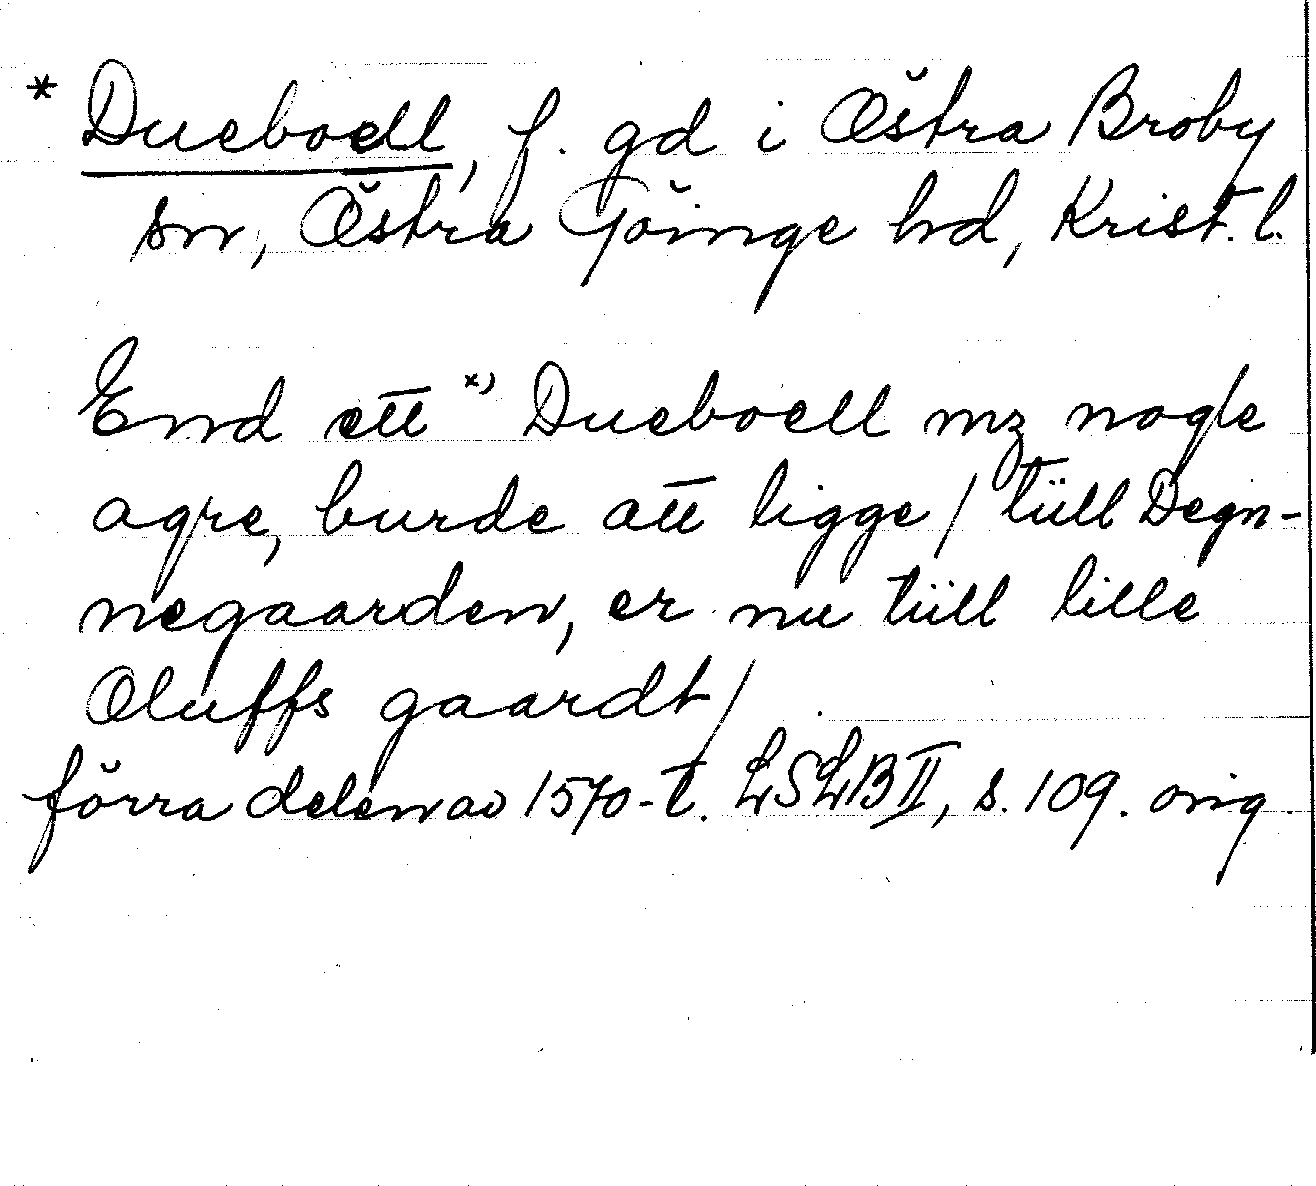 * Dueboell, f. gd i Östra Broby
sn, Östra Göinge hd, Krist. l.
End ett *) Dueboell mz nogle
agre, burde att ligge / tüll Degn-
negaarden, er nu tüll lille
Oluffs gaardt /
förra delen av 1570-t. LSLB II, s. 109. orig.